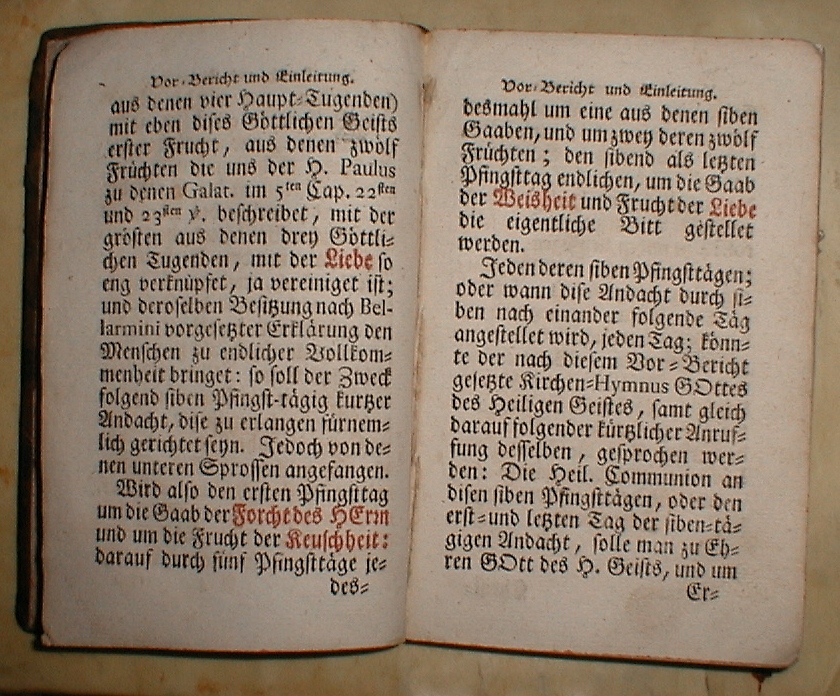 Vor-Bericht und Einleitung.
aus denen vier Haupt-Tugenden)
mit eben dises Göttlichen Geists
erster Frucht, aus denen zwölf
Früchten die uns der H. Paulus
zu denen Galat. im 5ten Cap. 22sten
und 23sten ℣. beschreibet, mit der
grösten aus denen drey Göttli-
chen Tugenden, mit der Liebe so
eng verknüpfet, ja vereiniget ist;
und deroselben Besitzung nach Bel-
larmini vorgesetzter Erklärung den
Menschen zu endlicher Vollkom-
menheit bringet: so soll der Zweck
folgend siben Pfingst-tägig kurtzer
Andacht, dise zu erlangen fürnem-
lich gerichtet seyn. Jedoch von de-
nen unteren Sprossen angefangen.
Wird also den ersten Pfingsttag
um die Gaab der Forcht des HErrn
und um die Frucht der Keuschheit:
darauf durch fünf Pfingsttäge je-
des-
Vor-Bericht und Einleitung.
desmahl um eine aus denen siben
Gaaben, und um zwey deren zwölf
Früchten; den sibend als letzten
Pfingsttag endlichen, um die Gaab
der Weisheit und Frucht der Liebe
die eigentliche Bitt gestellet
werden.
Jeden deren siben Pfingsttägen;
oder wann dise Andacht durch si-
ben nach einander folgende Täg
angestellet wird, jeden Tag; könn-
te der nach diesem Vor-Bericht
gesetzte Kirchen-Hymnus GOttes
des Heiligen Geistes, samt gleich
darauf folgender kürtzlicher Anruf-
fung desselben, gesprochen wer-
den: Die Heil. Communion an
disen siben Pfingsttägen, oder den
erst- und letzten Tag der siben-tä-
gigen Andacht, solle man zu Eh-
ren GOtt des H. Geists, und um
Er-